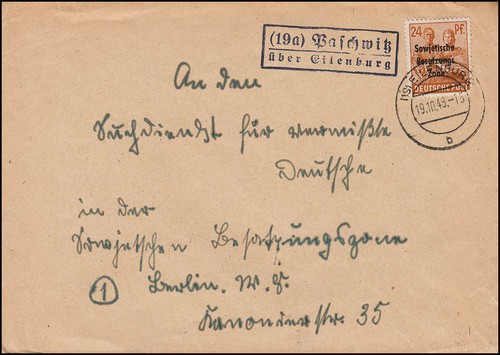 (19a) Paschwitz
über Eilenburg
24 PF.
Sowjetische
Besatzungs
Zone
DEUTSCHE POST
EILENBURG
19.10.48.-
b
An den
Suchdienst für vermißte
Deutsche
in der
Sowjetschen Besatzungszone
① Berlin. W. 8.
Kanonierstr. 35